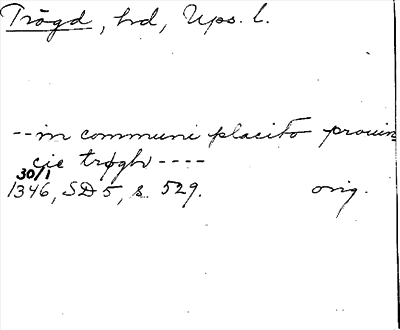 Trögd, hd, Upps. l.
--in communi placito prouin=
cie trøghr ----
30/1
1346, SD 5, s. 529. orig.